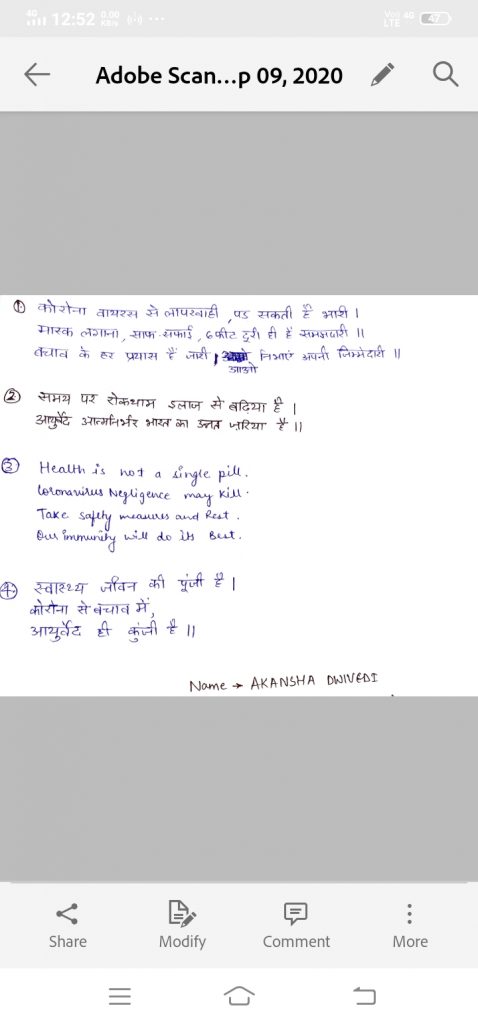 4G 12:52 0.00 KB/s ...
Vo) 4G LTE 47
Adobe Scan...p 09, 2020
① कोरोना वायरस से लापरवाही, पड सकती है भारी ।
मास्क लगाना, साफ-सफाई, 6 फीट दूरी ही है समझदारी ॥
बचाव के हर प्रयास हैं जारी, निभाएं अपनी जिम्मेदारी ॥
आओ
② समय पर रोकथाम इलाज से बढ़िया है ।
आयुर्वेद आत्मनिर्भर भारत का उन्नत ज़रिया है ॥
③ Health is not a single pill.
Coronavirus Negligence may kill.
Take safety measures and Rest.
Our immunity will do its Best.
④ स्वास्थ्य जीवन की पूंजी है ।
कोरोना से बचाव में,
आयुर्वेद ही कुंजी है ॥
Name → AKANSHA DWIVEDI
Share Modify Comment More